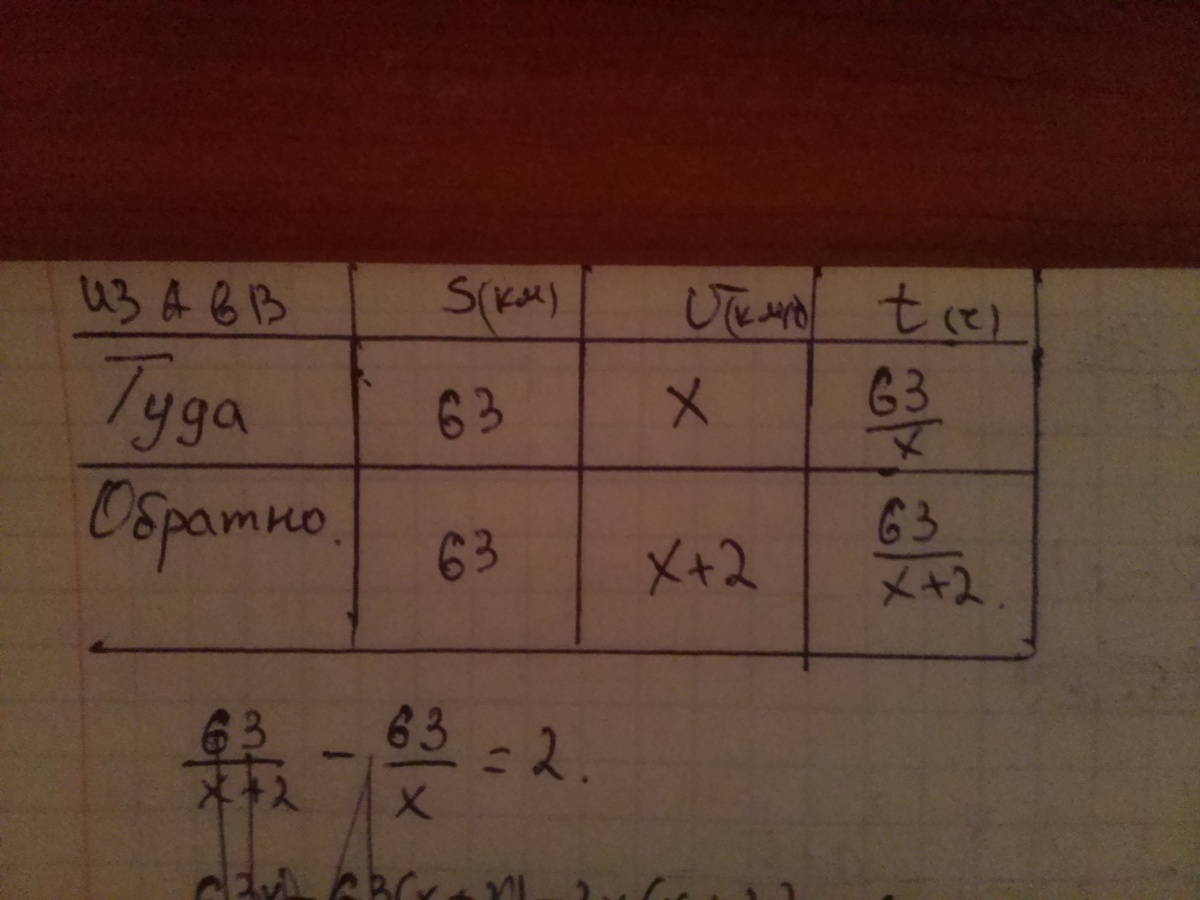 из А в В S(км) V(км/ч) t(ч)
Туда 63 x 63/x
Обратно. 63 x+2 63/(x+2).
63/(x+2) - 63/x = 2.